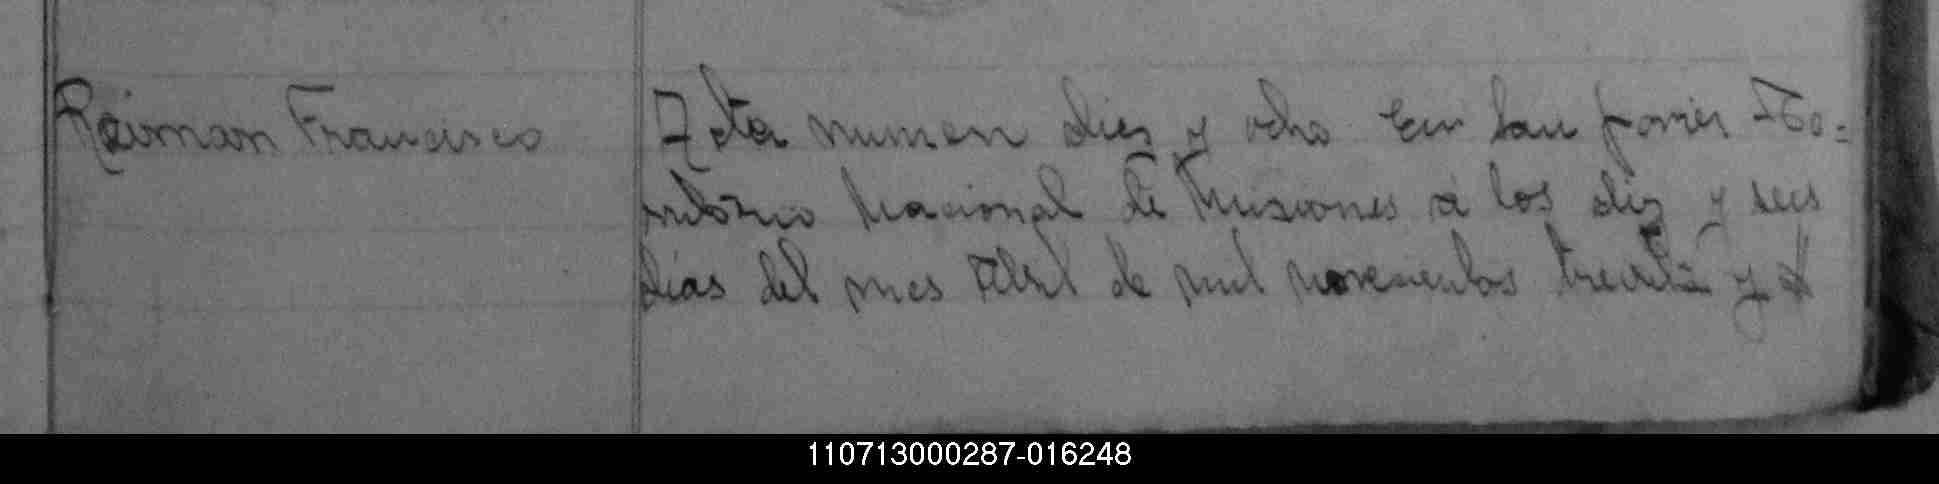 Raiman Francisco
Acta numero dies y ocho En San Javier Te=
rritorio Nacional de Misiones a los diez y seis
dias del mes Abril de mil novecientos treinta y d
110713000287-016248